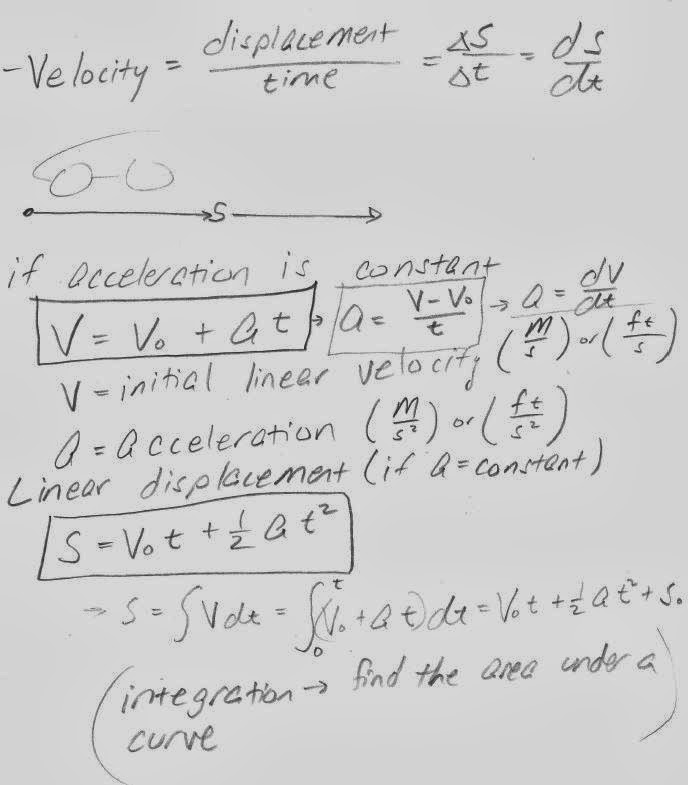 -Velocity = displacement/time = ΔS/Δt = ds/dt
S
if acceleration is constant
V = V₀ + at → a = (V - V₀)/t → a = dV/dt
V = initial linear velocity (m/s) or (ft/s)
a = acceleration (m/s²) or (ft/s²)
Linear displacement (if a = constant)
S = V₀t + ½at²
→ S = ∫Vdt = ∫₀ᵗ(V₀ + at)dt = V₀t + ½at² + S₀
(integration → find the area under a
curve)